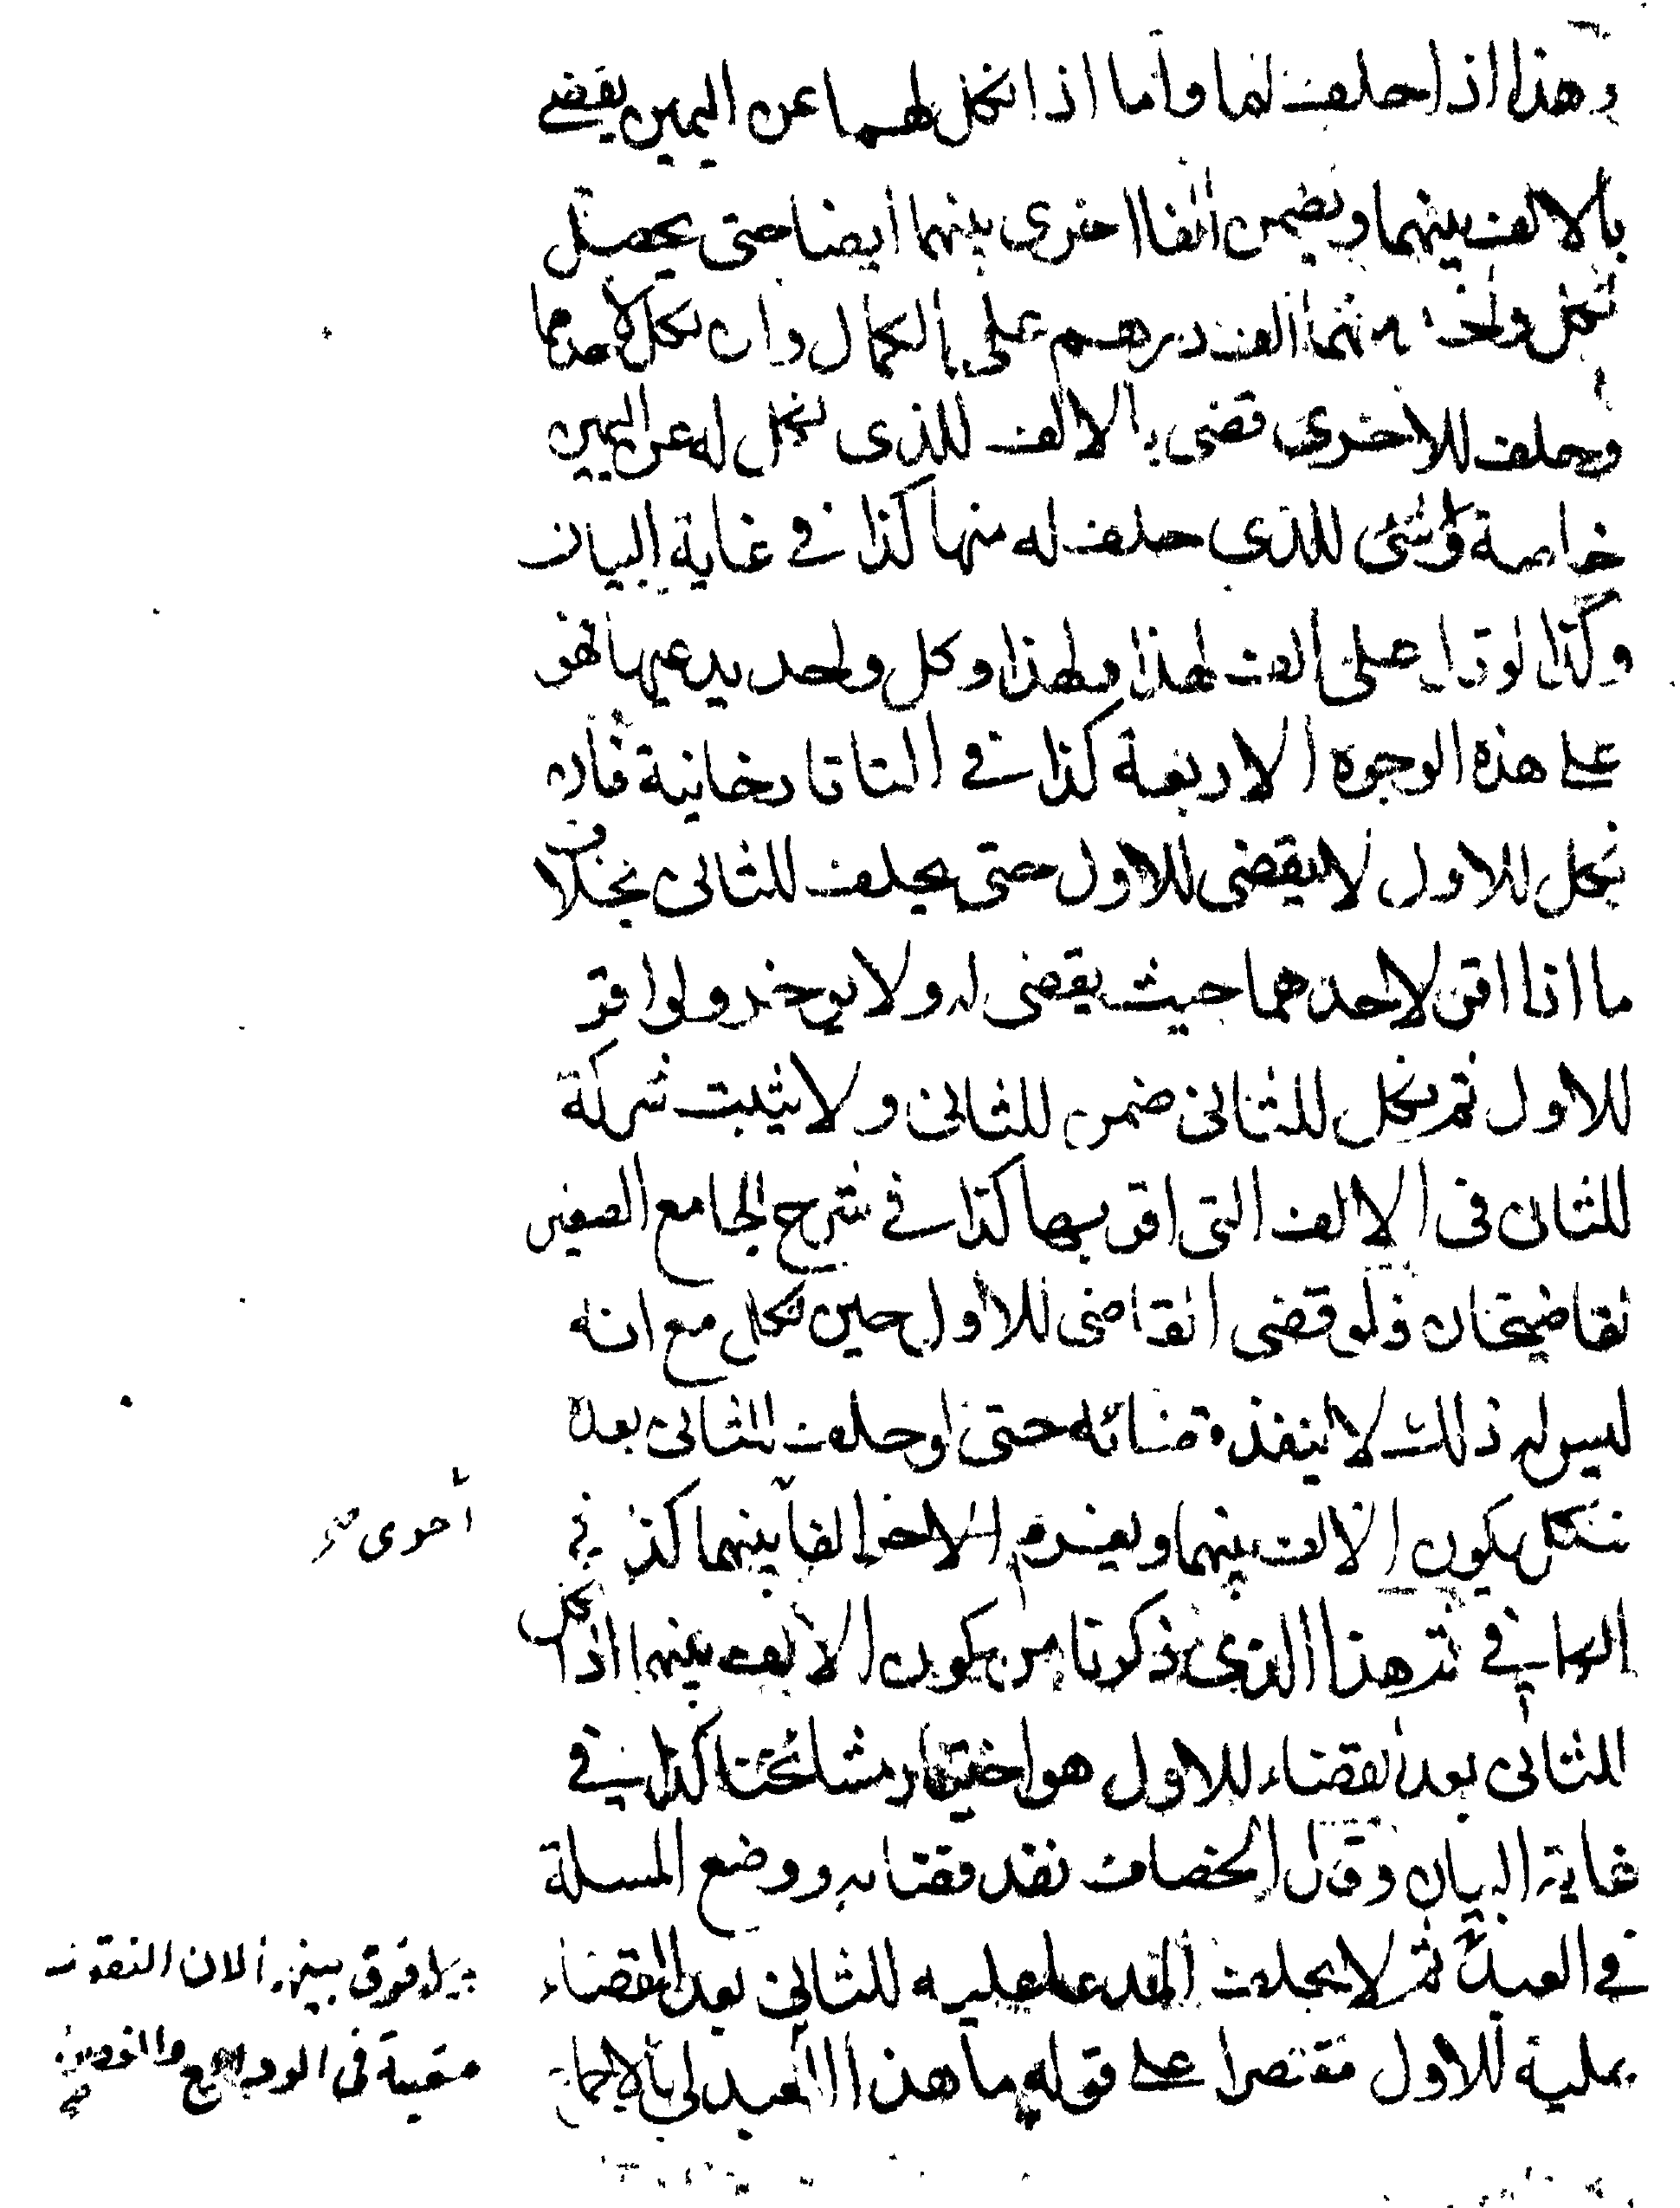 وهذا اذا حلف لهما واما اذا نكل لهما عن اليمين يقضى
بالالف بينهما ويضمن الفا اخرى بينهما ايضا حتى يحصل
لكل واحد منهما الف درهم على الكمال وان نكل لاحدهما
وحلف للاخرى قضى بالالف للذى نكل له عن اليمين
خاصة ولا شئ للذى حلف له منها كذا فى غاية البيان
وكذا لو قال على الف لهذا ولهذا وكل واحد يدعيها فهو
على هذه الوجوه الاربعة كذا فى التاتارخانية فان
نكل للاول لا يقضى للاول حتى يحلف للثانى بخلاف
ما اذا اقر لاحدهما حيث يقضى له ولا يوخر ولو اقر
للاول ثم نكل للثانى ضمن للثانى ولا يثبت شركة
للثانى فى الالف التى اقر بها كذا فى شرح الجامع الصغير
لقاضيخان فلو قضى القاضى للاول حين نكل مع انه
ليس له ذلك لا ينفذ قضائه حتى لو حلف للثانى بعده
فنكل يكون الالف بينهما ويغرم الاخر الفا بينهما كذا فى
أخرى صح
الكافى ثم هذا الذى ذكرنا من يكون الالف بينهما اذا نكل
للثانى بعد القضاء للاول هو اختيار مشائخنا كذا فى
غاية البيان وقال الخصاف نفذ قضاءه ووضع المسلة
فى العبد ثم لا يحلف المدعا عليه للثانى بعد القضاء
ولا فرق بينهما لان النقود
عليه للاول مقتصرا على قوله ما هذا العبد لى بالاجماع
متعينة فى الودائع والغصوب صح